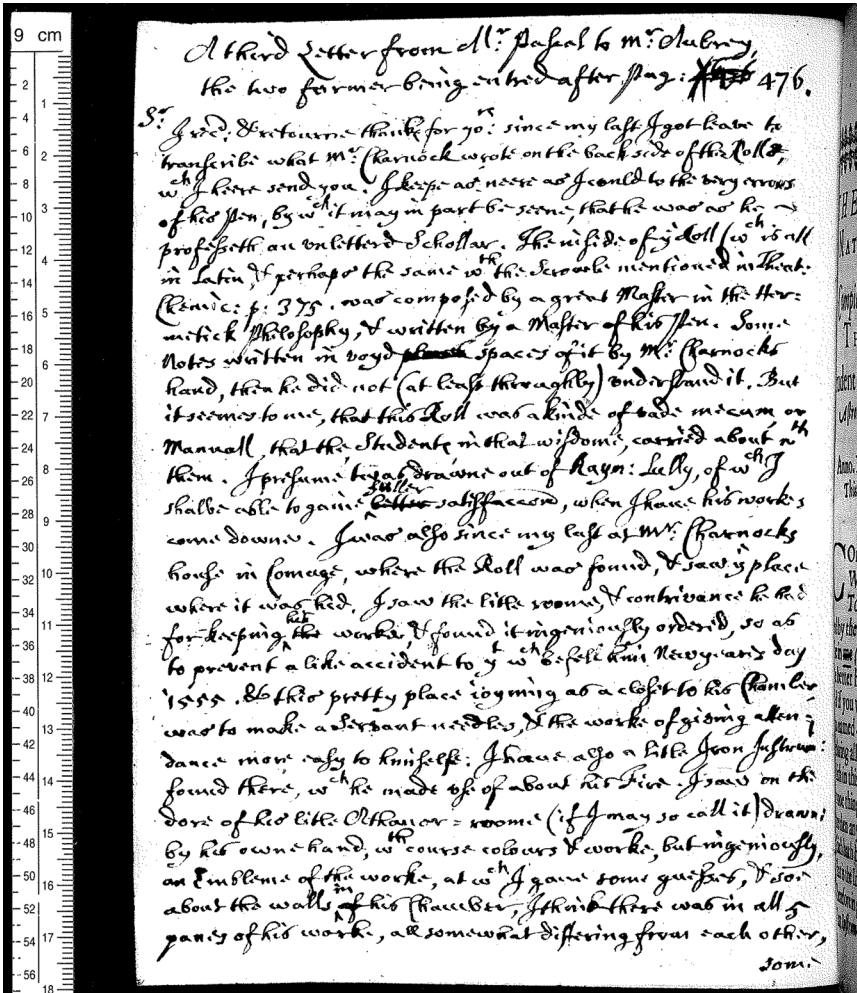 A third Letter from Mr. Pascal to Mr. Aubrey,
the two former being entred after Pag: 476.
Sr.
I recd: & retourne thanks for yors: since my last I got leave to
transcribe what Mr. Charnock wrote on the back side of the Rolle,
wch I heere send you. I keepe as neere as I could to the very errors
of his Pen, by wch it may in part be seene, that he was as he
professeth an unletterd Schollar. The inside of ye Roll (wch is all
in Latin, & perhaps the same wth the Scrowle mentioned in Theatr.
Chemic: p: 375. was composed by a great Master in the Her=
metick Philosophy, & written by a Master of his Pen. Some
Notes written in voyd spaces of it by Mr. Charnocks
hand, then he did not (at least throughly) understand it. But
it seemes to me, that this Roll was a kinde of vade mecum or
Manuall, that the Students in that wisdome, carried about wth
them. I presume twas drawne out of Raym: Lully, of wch I
fuller
shalbe able to gaine better satisfaccon, when I have his workes
come downe. I was also since my last at Mr. Charnocks
house in Comage, where the Roll was found, & saw ye place
where it was hid. I saw the litle roome, & contrivance he had
for keeping the worke, & found it ingeniously ordered, so as
to prevent a like accident to yt wch befell him Newyeares day
1555. & this pretty place ioyning as a closet to his Chamber
was to make a Servant needles, & the worke of giving atten=
dance more easy to himselfe. I have also a litle Iron Instrum:
found there, wch he made use of about his Fire. I saw on the
dore of his litle Athanor=roome (if I may so call it) drawn
by his owne hand, wth course colours & worke, but ingeniously,
an Embleme of the worke, at wch I gave some guesses, & soe
in
about the walls of his Chamber, I think there was in all 5
panes of his worke, all somewhat differing from each other,
some
9 cm
2
4
6
8
10
12
14
16
18
20
22
24
26
28
30
32
34
36
38
40
42
44
46
48
50
52
54
56
1
2
3
4
5
6
7
8
9
10
11
12
13
14
15
16
17
18